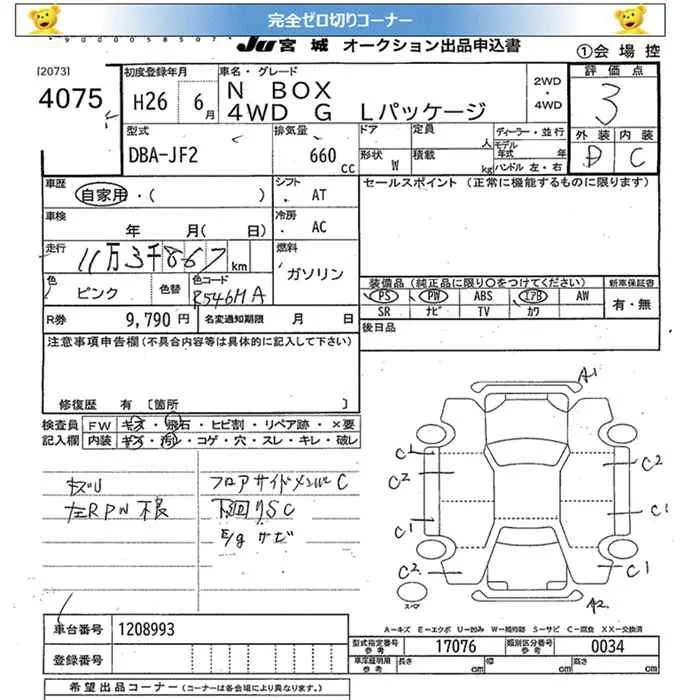 完全ゼロ切りコーナー
JU宮城 オークション出品申込書
①会場控
[2073]
4075
初度登録年月
H26 6月
車名・グレード
N BOX
4WD G Lパッケージ
2WD
・
4WD
評価点
3
外装 内装
D C
型式
DBA-JF2
排気量
660
cc
ドア
定員
人
ディーラー・並行
モデル年式 年
形状 W
積載
kg
ハンドル 左・右
車歴
自家用・( )
シフト
・ AT
セールスポイント (正常に機能するものに限ります)
車検
年 月( 日)
冷房
・ AC
走行
11万3千867km
燃料
ガソリン
色
ピンク
色替
色コード
R546MA
装備品(純正品に限り○をつけてください)
新車保証書
PS PW ABS エアB AW
SR ナビ TV カワ
有・無
R券 9,790円
名変通知期限 月 日
後日品
注意事項申告欄(不具合内容等は具体的に記入して下さい)
修復歴 有 〔箇所 〕
検査員 FW キズ・飛石・ヒビ割・リペア跡・×要
記入欄 内装 キズ・汚れ・コゲ・穴・スレ・キレ・破レ
左RPW不良
フロアサイドメンバーC
下回りSC
E/gサビ
A1
C1
C2
C1
C2
C2
C1
C1
A2
スペア
A－キズ E－エクボ U－凹み W－補修跡 S－サビ C－腐食 XX－交換済
車台番号 1208993
登録番号
型式指定番号 参考 17076
類別区分番号 参考 0034
車庫証明用 参考
長さ cm
幅 cm
高さ cm
希望出品コーナー (コーナーは各会場により異なります。)